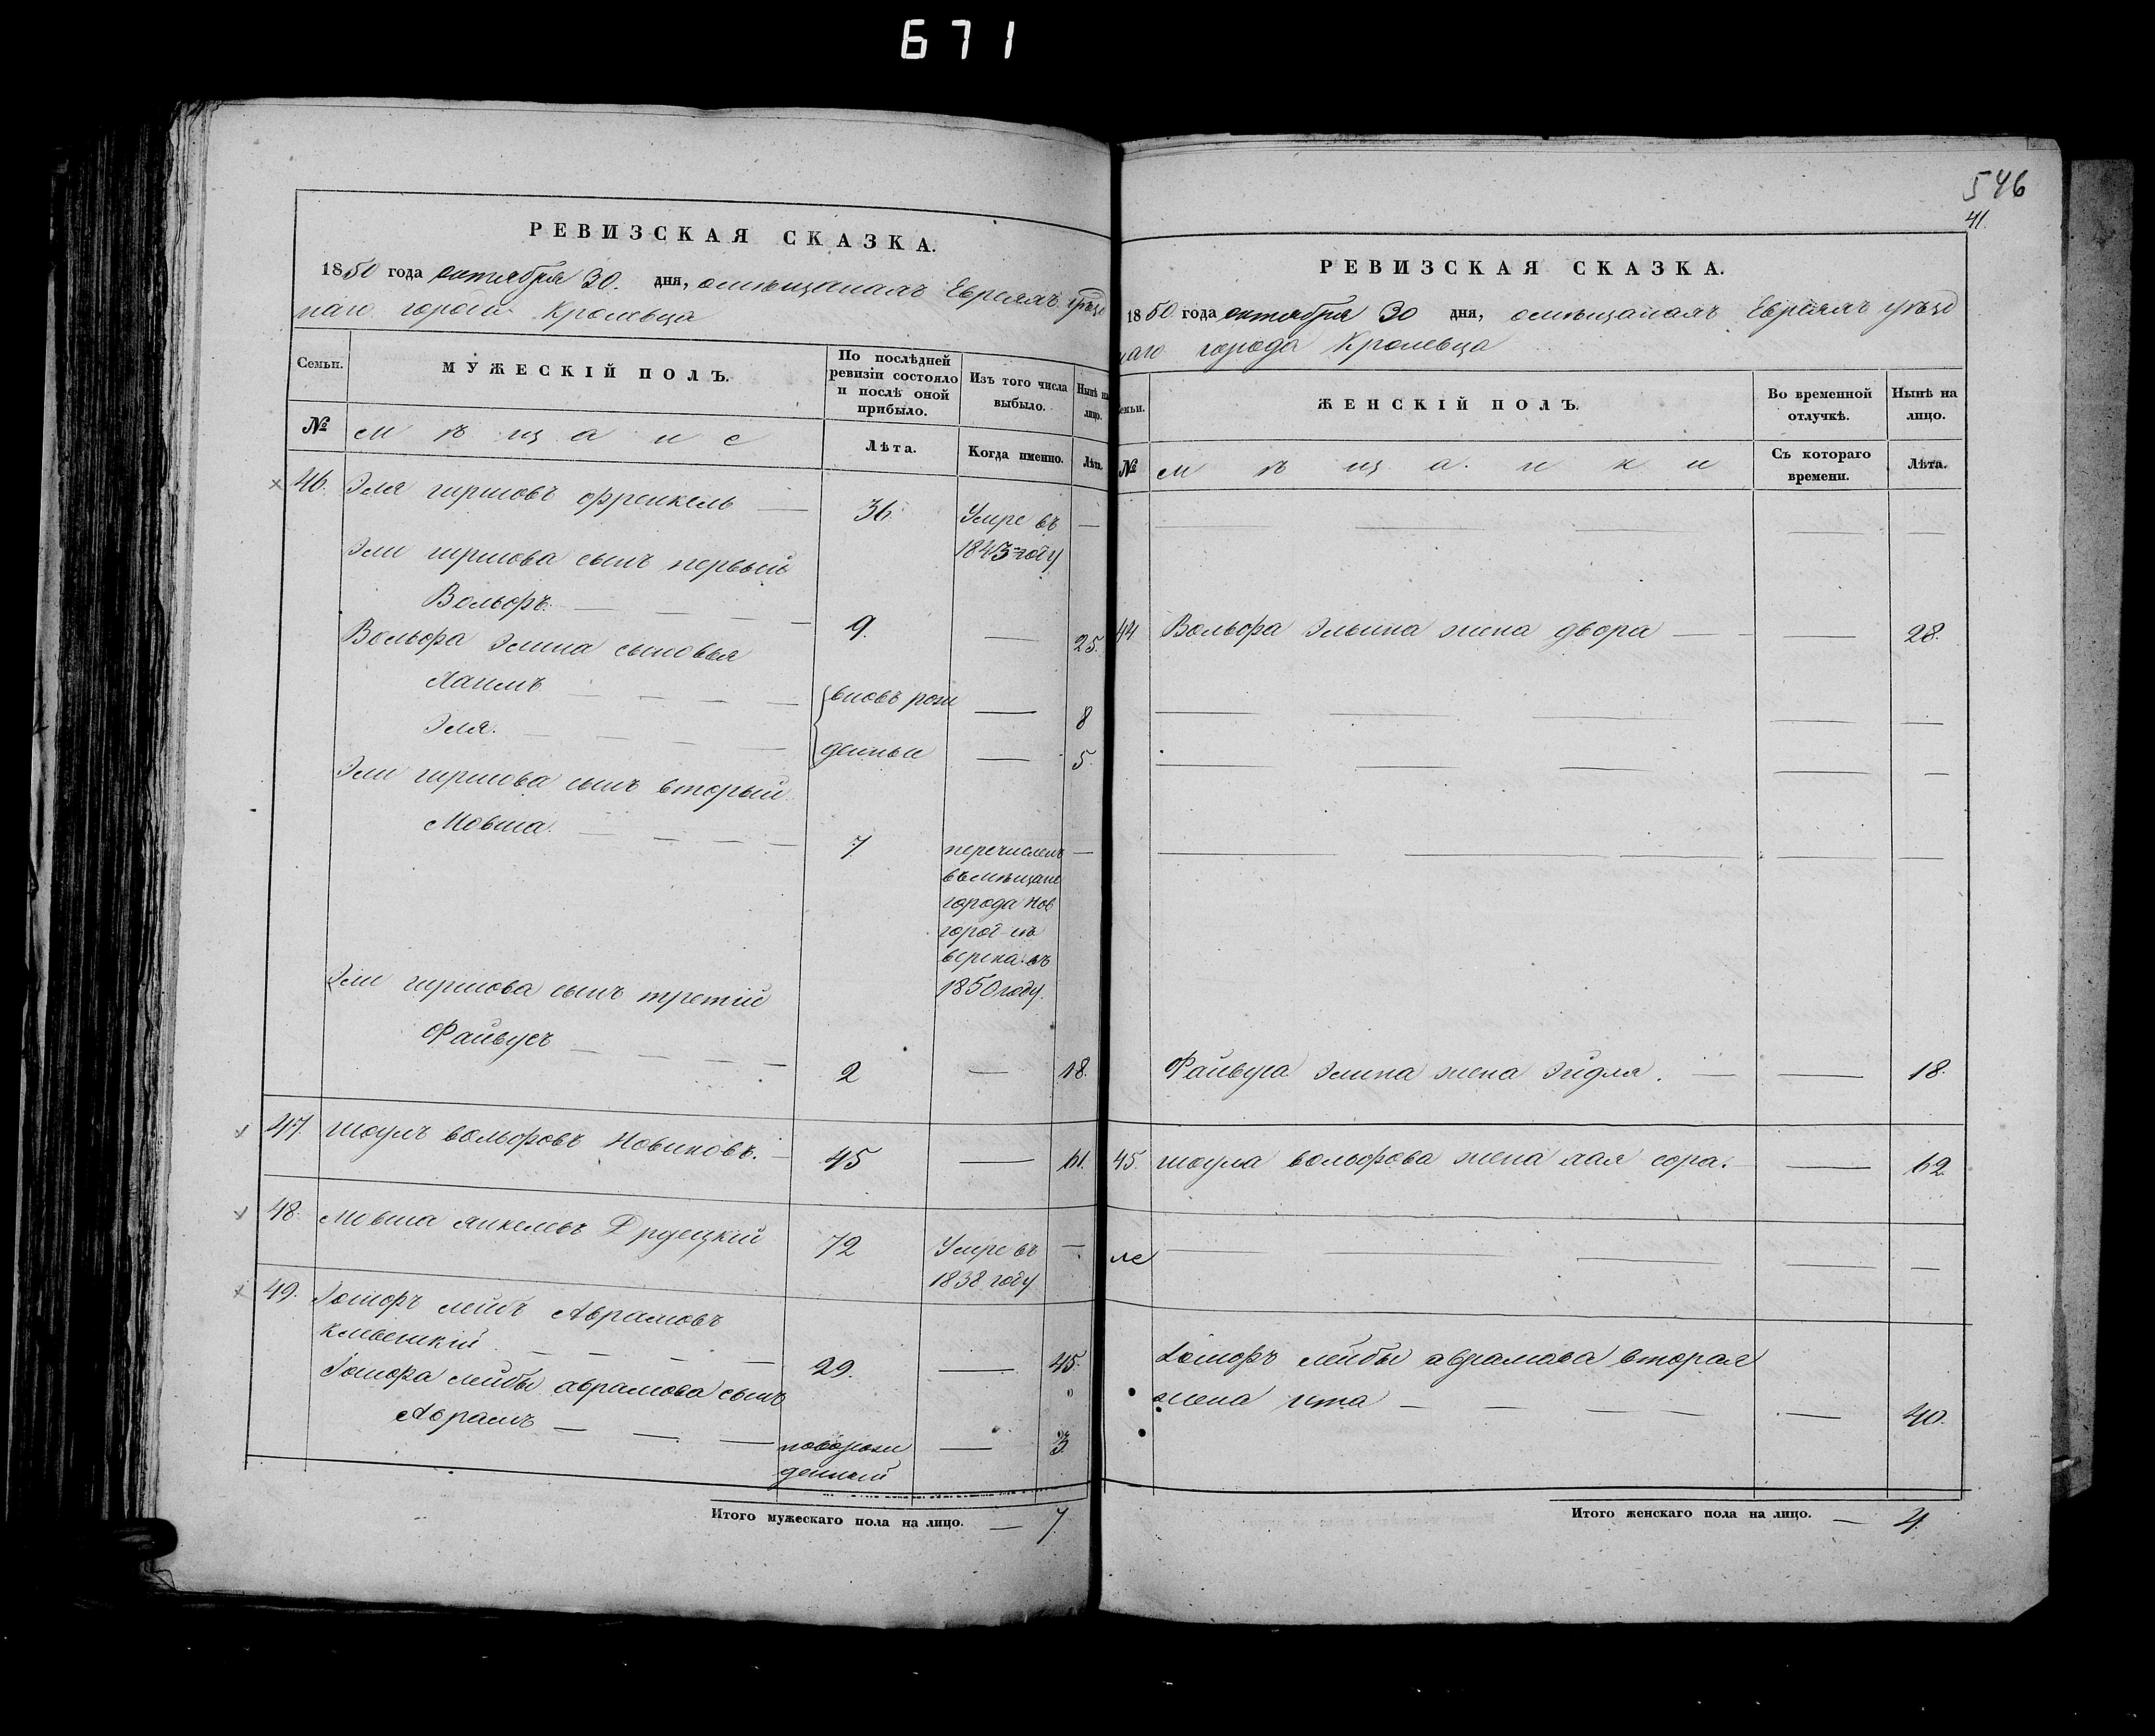 671
РЕВИЗСКАЯ СКАЗКА.
1850 года октября 30. дня, о мѣщанахъ Евреяхъ уѣзд
наго города Кролевца
Семьи.
МУЖЕСКІЙ ПОЛЪ.
По послѣдней ревизіи состояло и послѣ оной прибыло.
Изъ того числа выбыло.
Нынѣ на лицо.
№
м ѣ щ а н е
Лѣта.
Когда именно.
Лѣта.
46. Эля гиршовъ Френкель — 36. Умре въ —
1843 году
Эли гиршова сынъ первый
Вольфъ. — — — 9. — 25.
Вольфа Элина сыновья
Хаимъ — — — — вновь рож — 8
Эля. — — — — денны — 5
Эли гиршова сынъ вторый
Мовша. — — — — 7. перечисленъ —
въ мѣщане
города Нов
город сѣ
верска въ
1850 году.
Эли гиршова сынъ третій
Файвусъ — — — — 2 — 18.
47. Шоулъ вольфовъ Новиковъ. — 45 — 61.
48. Мовша янкелевъ 72 Умре въ —
1838 году
49. лейбъ Аврамовъ
— — — — 29. — 45.
лейбы аврамова сынъ
Аврамъ — — — новорож — 3.
денный
Итого мужескаго пола на лицо. — 7.
546
41.
РЕВИЗСКАЯ СКАЗКА.
1850 года октября 30 дня, о мѣщанахъ Евреяхъ уѣзд
наго города Кролевца
Семьи.
ЖЕНСКІЙ ПОЛЪ.
Во временной отлучкѣ.
Нынѣ на лицо.
№
м ѣ щ а н к и
Съ котораго времени.
Лѣта.
44 Вольфа Эльина жена двора — — 28.
Файвуса Элина жена Эйдля. — — 18.
45. Шоула вольфова жена хая сора. — 62.
лейбы аврамова вторая
жена ита — — — — — 40.
Итого женскаго пола на лицо. — 4.